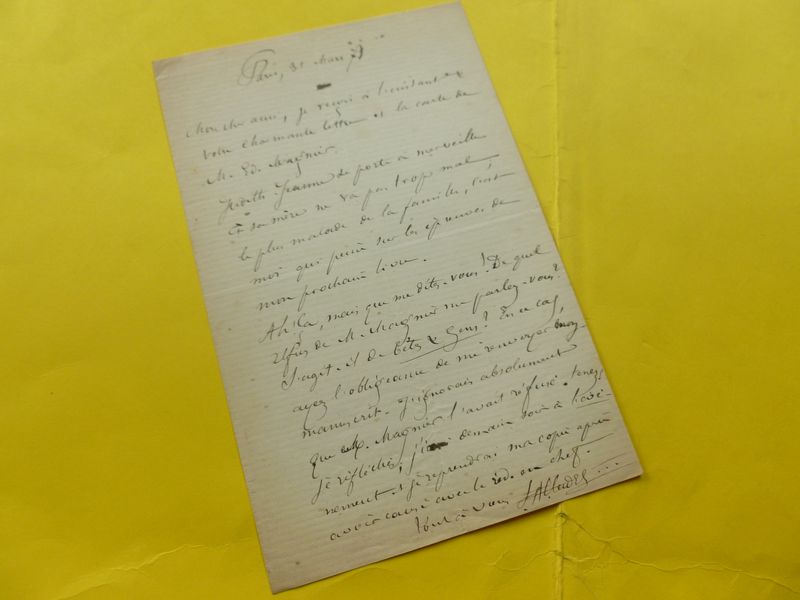 Paris, 31 Mars 79
Mon cher ami, je reçois à l'instant
votre charmante lettre et la carte de
M. Ed. Magnier.
Judith-Jeanne se porte à merveille
Et sa mère ne va pas trop mal
le plus malade de la famille, c'est
moi qui peine sur les épreuves de
mon prochain livre.
Ah! ça, mais que me dites-vous! De quel
refus de M. Magnier me parlez-vous?
S'agit-il de bêtes & Gens? En ce cas,
ayez l'obligeance de me renvoyer mon
manuscrit. J'ignorais absolument
que M. Magnier l'avait refusé. tenez,
je réfléchis, j'irai demain soir à l'évè-
nement & je reprendrai ma copie après
avoir causé avec le réd. en chef.
Tout à vous